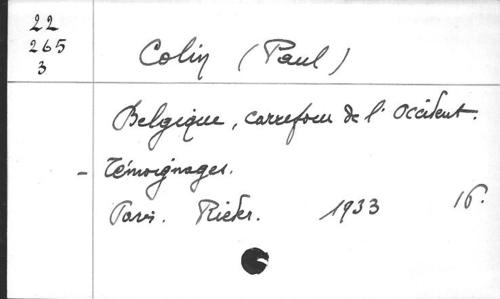 22
265
3
Colin (Paul)
Belgique, carrefour de l'Occident.
- Témoignages.
Paris. Rieder. 1933 16.